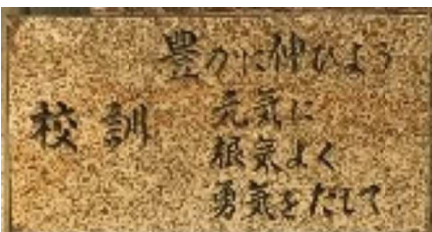 校訓
豊かに伸びよう
元気に
根気よく
勇気をだして